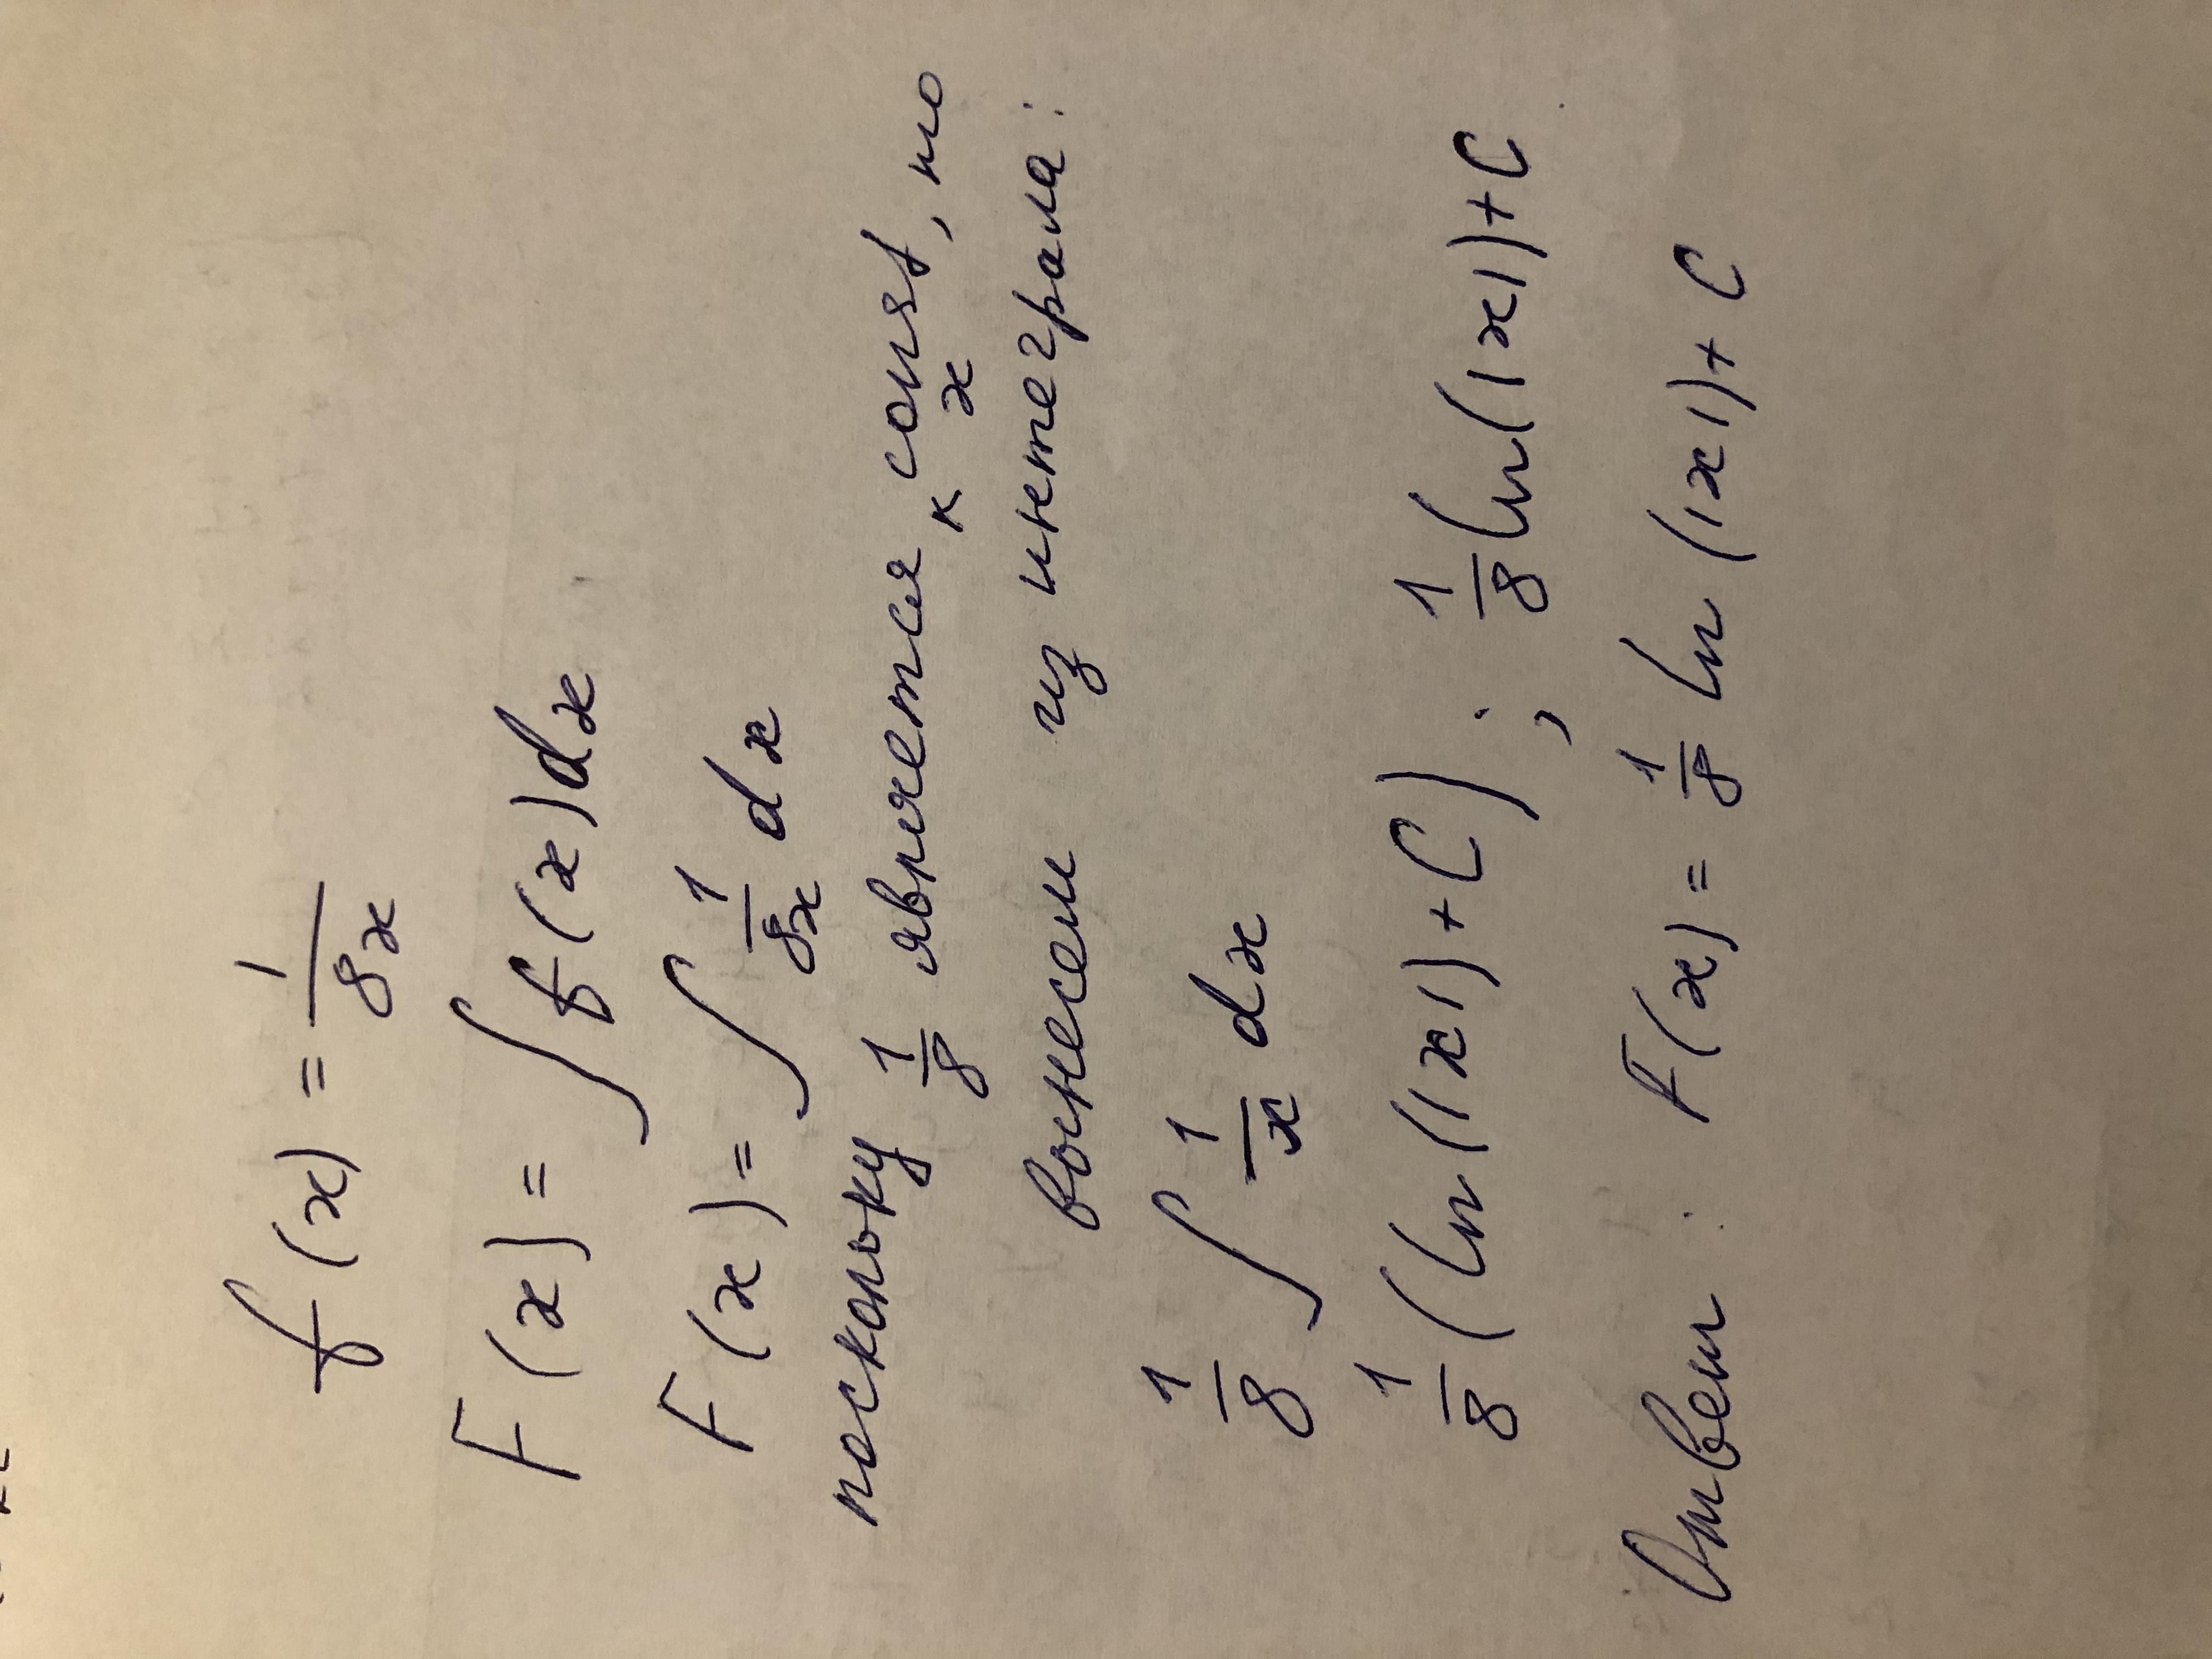 f(x) = 1/8x
F(x) = ∫ f(x)dx
F(x) = ∫ 1/8x dx
поскольку 1/8 является const, то
к х
вынесем из интеграла:
1/8 ∫ 1/x dx
1/8 (ln(|x|)+C) ; 1/8 ln(|x|)+C
Ответ: F(x) = 1/8 ln(|x|)+C